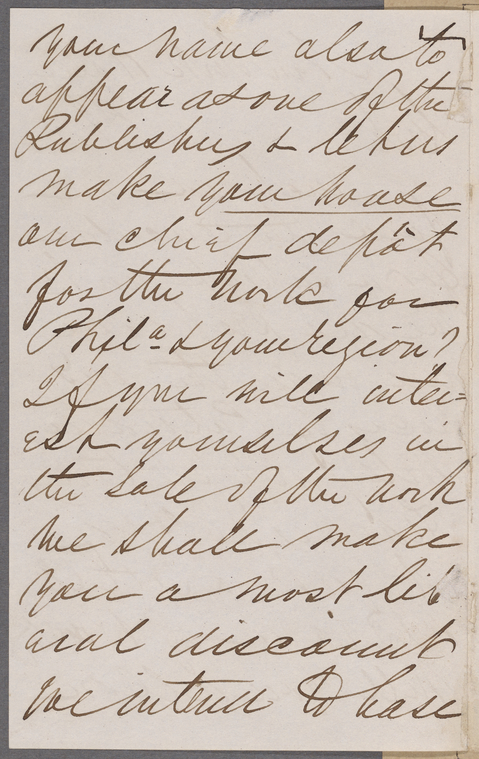 your name also to
appear as one of the
Publishers & let us
make your house
our chief depôt
for the work for
Phila & your region?
If you will inter=
est yourselves in
the sale of the work
we shall make
you a most lib
eral discount
We intend to have